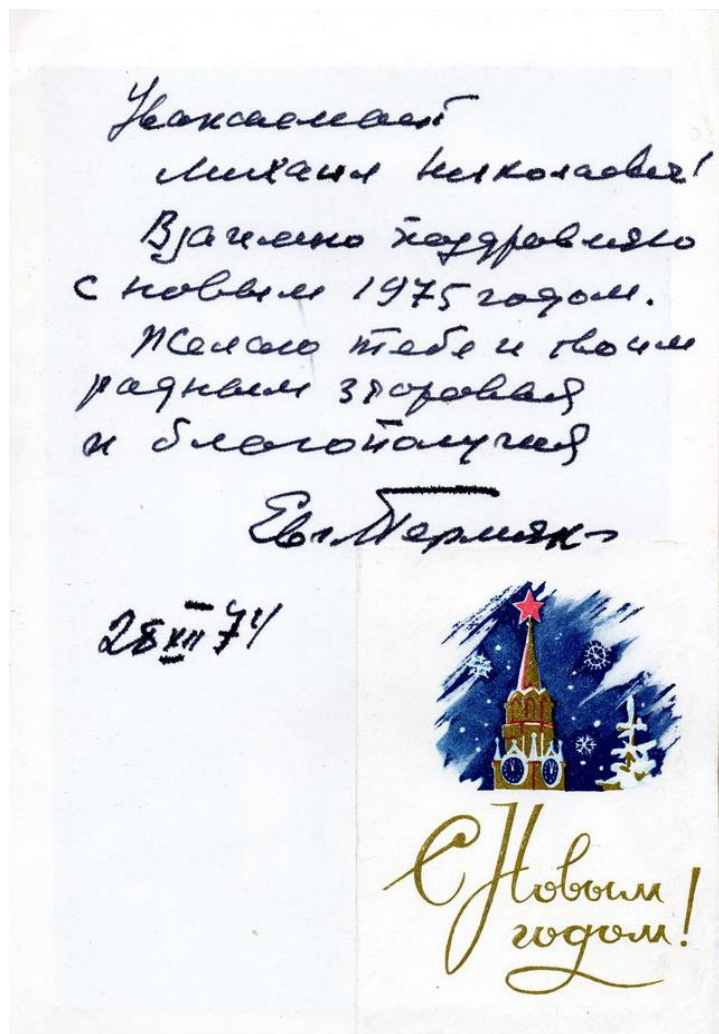 Уважаемый
Михаил Николаевич!
Взаимно поздравляю
с новым 1975 годом.
Желаю тебе и твоим
родным здоровья
и благополучия
Евг Пермяк
28 XII 74
С Новым
годом!